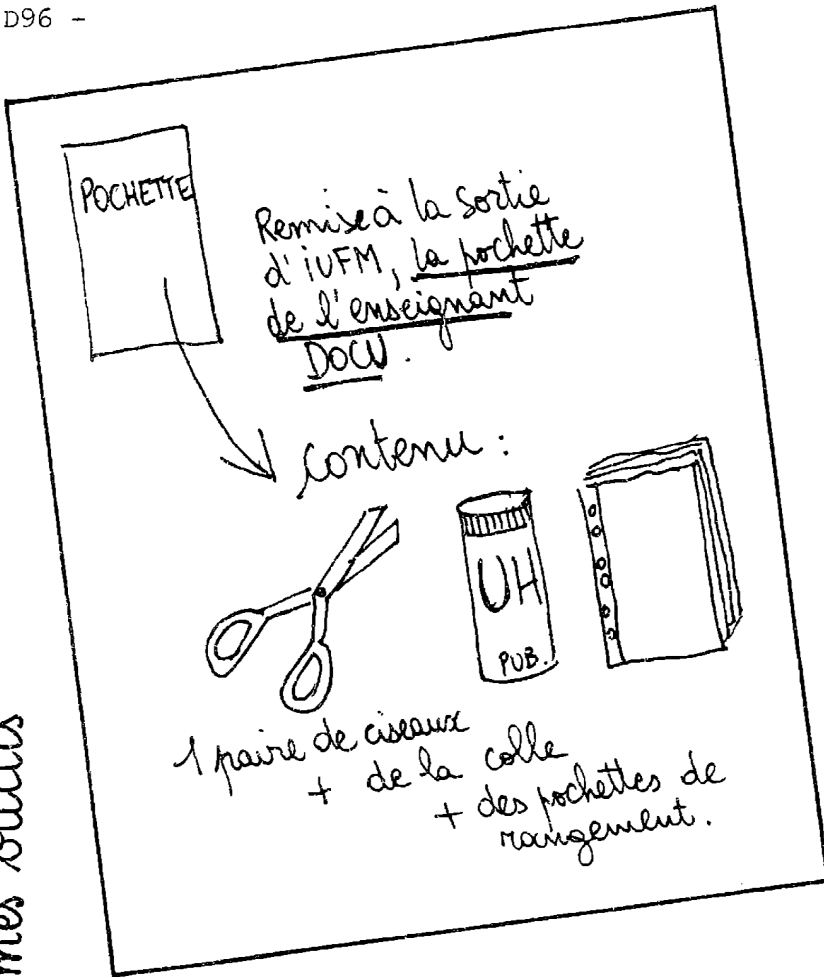 D96 -
POCHETTE
Remise à la sortie
d'iUFM, la pochette
de l'enseignant
DOCU.
contenu :
UH
PUB.
1 paire de ciseaux
+ de la colle
+ des pochettes de
rangement.
mes outils